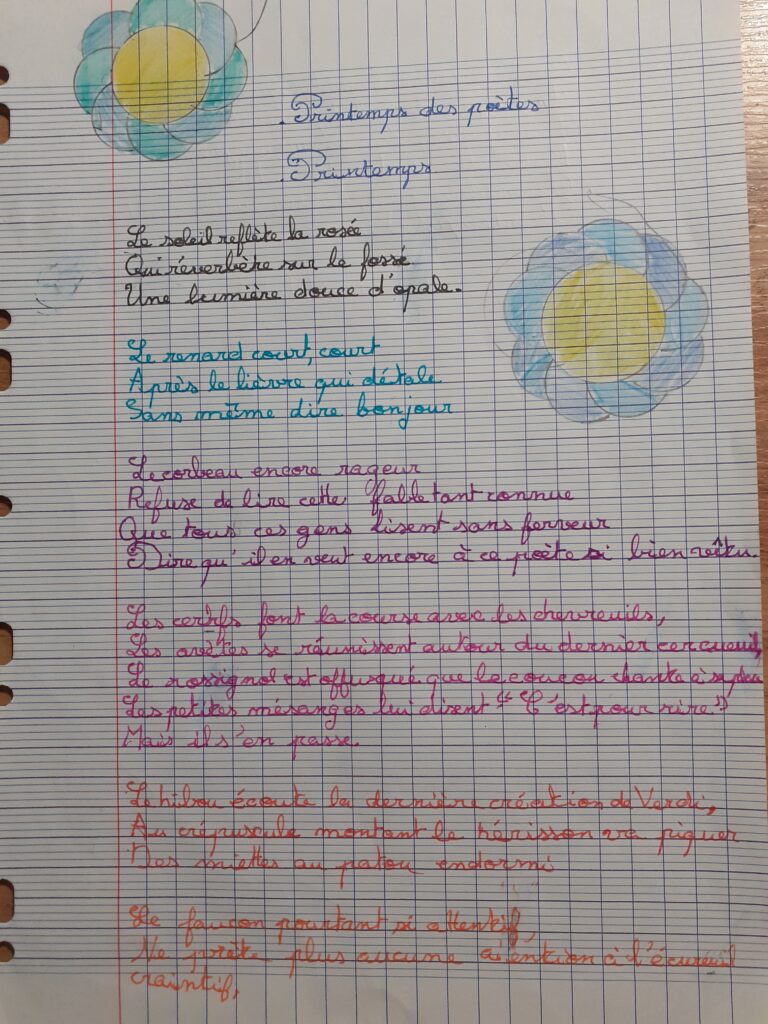 Printemps des poètes
Printemps
Le soleil reflète la rosée
Qui réverbère sur le fossé
Une lumière douce d'opale.
Le renard court, court
Après le lièvre qui détale
Sans même dire bonjour
Le corbeau encore rageur
Refuse de lire cette fable tant connue
Que tous ces gens lisent sans ferveur
Dire qu'il en veut encore à ce poète si bien vêtu.
Les cerfs font la course avec les chevreuils,
Les se réunissent autour du dernier cercueil,
Le rossignol est offusqué que le coucou chante à sa place
Les petites mésanges lui disent "C'est pour rire"
Mais il s'en passe.
Le hibou écoute la dernière création de Verdi,
Au crépuscule montant le hérisson va piquer
Des miettes au patou endormi
Le faucon pourtant si attentif,
Ne prête plus aucune attention à l'écureuil
craintif,